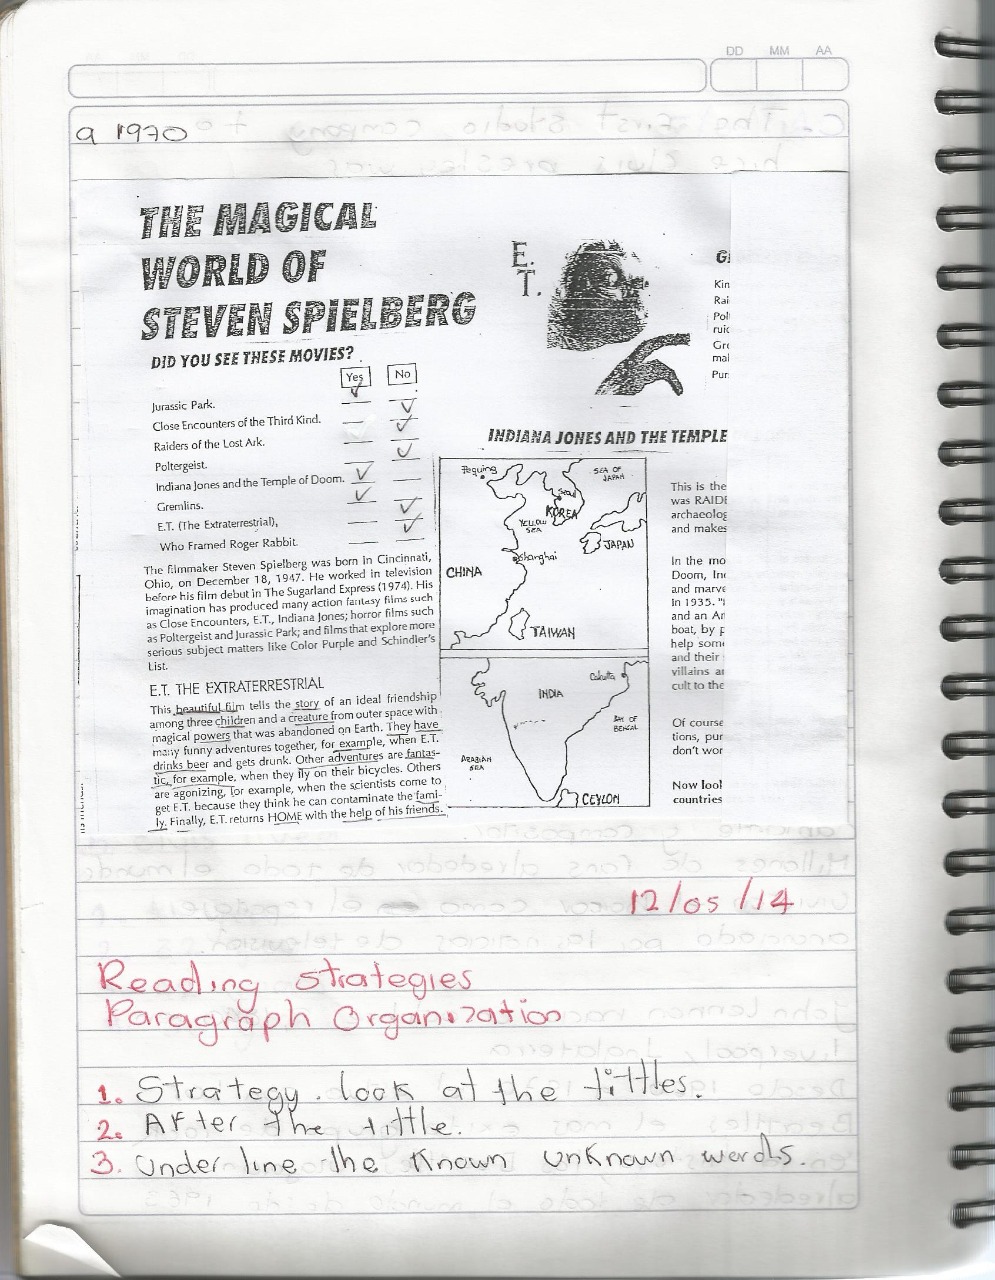 DD MM AA
a 1970
THE MAGICAL
WORLD OF
STEVEN SPIELBERG
DID YOU SEE THESE MOVIES?
Yes No
Jurassic Park.
Close Encounters of the Third Kind.
Raiders of the Lost Ark.
Poltergeist.
Indiana Jones and the Temple of Doom.
Gremlins.
E.T. (The Extraterrestrial),
Who Framed Roger Rabbit.
The filmmaker Steven Spielberg was born in Cincinnati,
Ohio, on December 18, 1947. He worked in television
before his film debut in The Sugarland Express (1974). His
imagination has produced many action fantasy films such
as Close Encounters, E.T., Indiana Jones; horror films such
as Poltergeist and Jurassic Park; and films that explore more
serious subject matters like Color Purple and Schindler's
List.
E.T. THE EXTRATERRESTRIAL
This beautiful film tells the story of an ideal friendship
among three children and a creature from outer space with
magical powers that was abandoned on Earth. They have
many funny adventures together, for example, when E.T.
drinks beer and gets drunk. Other adventures are fantas-
tic, for example, when they fly on their bicycles. Others
are agonizing, for example, when the scientists come to
get E.T. because they think he can contaminate the fami-
ly. Finally, E.T. returns HOME with the help of his friends.
E.
T.
G
Kin
Rai
Pol
ruic
Gre
mal
Pur
INDIANA JONES AND THE TEMPLE
Pequing
SEA OF
JAPAN
Seoul
KOREA
YELLOW
SEA
JAPAN
Shanghai
CHINA
TAIWAN
INDIA
Calcutta
BAY OF
BENGAL
ARABIAN
SEA
CEYLON
This is the
was RAIDE
archaeolog
and makes
In the mo
Doom, Inc
and marve
In 1935. "I
and an Ar
boat, by p
help som
and their
villains ar
cult to the
Of course
tions, pur
don't wor
Now lool
countries
12/05/14
Reading strategies
Paragraph Organization
1. Strategy. look at the tittles.
2. After the tittle.
3. Under line the Known unknown words.